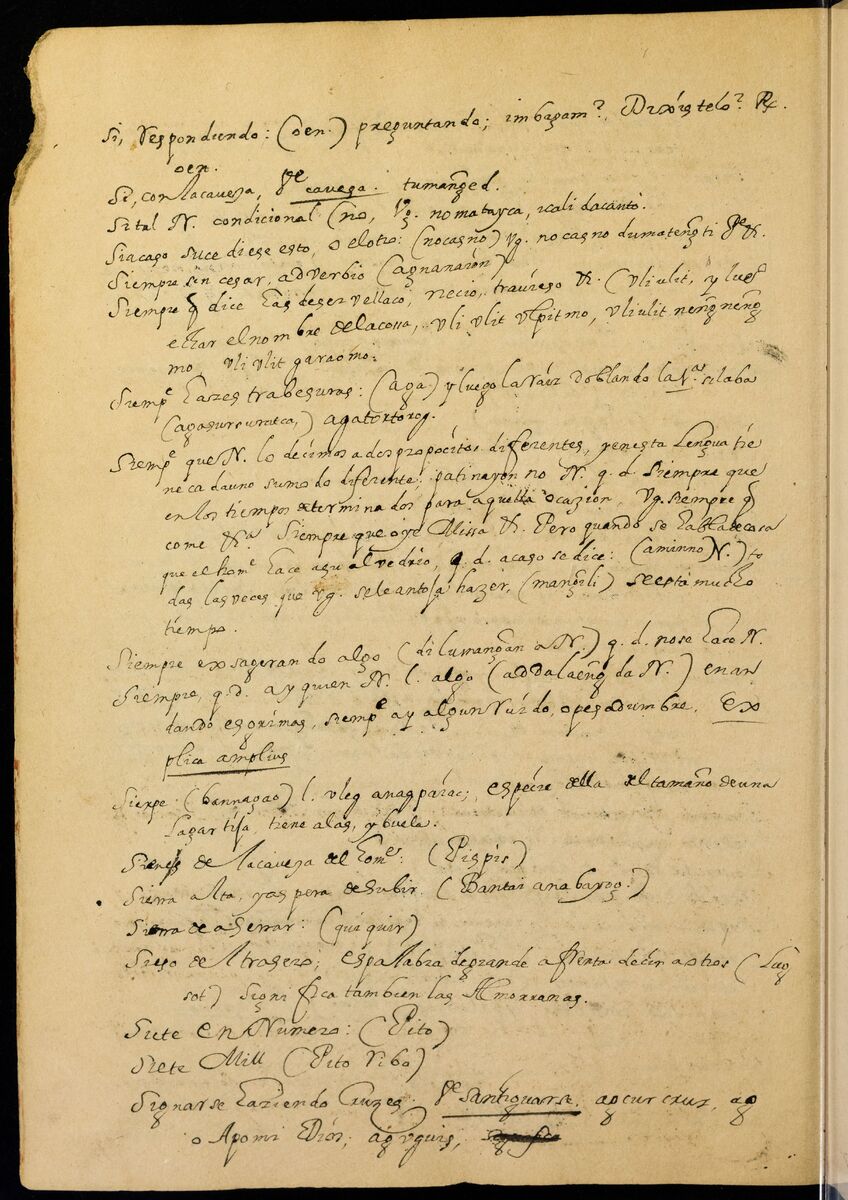 Si, respondiendo: (oen.) preguntando; imbagam?, Dixístelo? Rx.
oen.
Si, con la caveza, Ve caveza. tumanged.
Si tal N. condicional (no, vg. nomatayca,
Si acaso sucediese esto, o el otro: (nocagno) vg. nocagno dumateng ti
Siempre sin cesar, adverbio (agnanaion)
Siempre q dice has de ser vellaco, recio, traviezo &. (uli ulit, y lueg
echar el nombre de la cossa, uli ulit ulpitmo, uli ulit nengneng
mo, uli ulit garaomo:
Siempe hazes trabesuras: (aga) y luego la raiz doblando la 1ª silaba
(agasursuratca,) agatortorog.
Siempe que N. lo decimos a dos propocitos diferentes, y en esta Lengua tie
ne cada uno su modo diferente; patinayon no N. q. d. siempre que
en los tiempos determinados para aquella ocazion, vg. siempre q
come &a Siempre que oye Missa &. Pero quando se habla de cosa
que el home hace a su alvedrio, q. d. acaso se dice: (aminno N.) to
das las veces que vg. se le antoja hazer, (mangili) se está mucho
tiempo.
Siempre exsagerando algo (dilumangan a N.) q. d. no se hace N.
Siempre, q. d. ay quien N. l. algo (addalaeng da N.) en an
dando esgrimas, siempe ay algun ruido, o pesadumbre. Ex
plica amplius
Sierpe. (bannagao) l. uleg anagparac; espécie della del tamaño de una
Lagartija, tiene alas, y buela.
Sienes de la caveza del home: (Pispis)
Sierra alta, y aspera de subir. (Bantai a nabayog.)
Sierra de aserrar: (quiquir)
Sieso del trasero; es palabra de grande afrenta decir a otros (Lag
sot) Significa tambien las Almorranas.
Siete en Número: (Pito)
Siete Mill (Pito ribo)
Signarse haziendo Cruzes: Ve Santiguarse. agcurcruz, ag
o Apomi Dios; ag uguis,